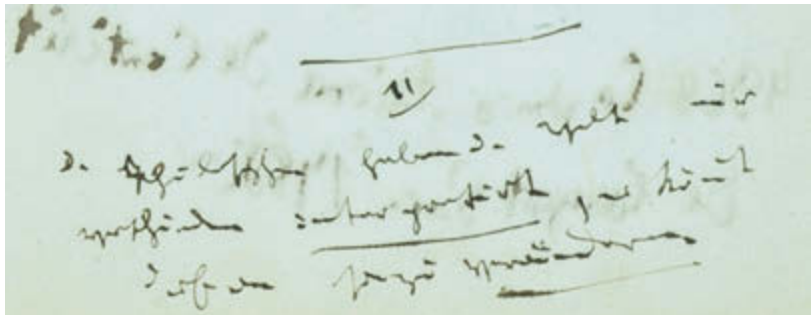 11
D. Philosophen haben d. Welt nur
verschieden interpretirt, es kömmt
drauf an sie zu verändern.